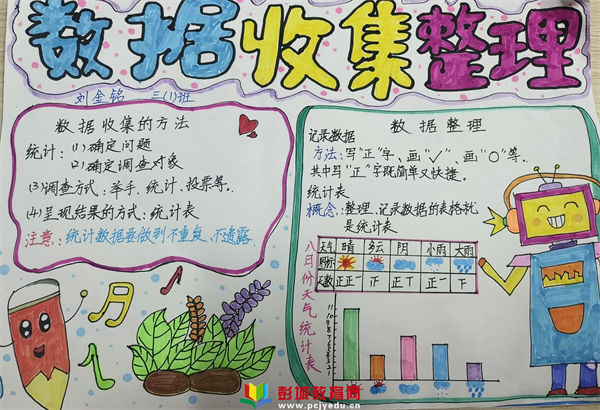 数据收集整理
刘金铭 三(1)班
数据收集的方法
统计：(1)确定问题
(2)确定调查对象
(3)调查方式：举手、统计、投票等。
(4)呈现结果的方式：统计表
注意：统计数据要做到不重复、不透露.
数据整理
记录数据
方法：写“正”字、画“√”、画“○”等.
其中写“正”字既简单又快捷。
统计表
概念：整理、记录数据的表格就
是统计表
八月份天气统计表
天气 晴 多云 阴 小雨 大雨
图标
天数
11
10
9
8
7
6
5
4
3
2
1
彭城教育网
www.pcjyedu.cn